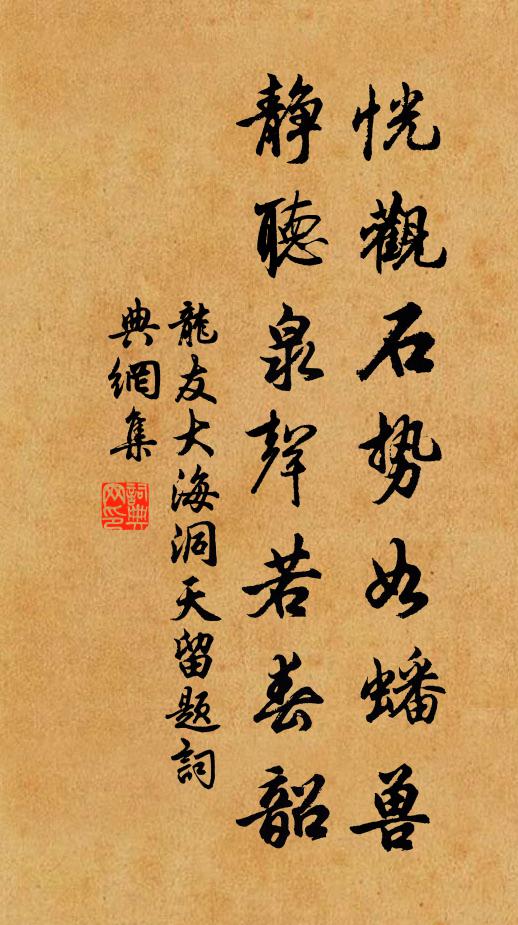 恍觀石势如蟠兽
静聽泉聲若春韶
龍友大海洞天留題詞
典網集
詞典
网印